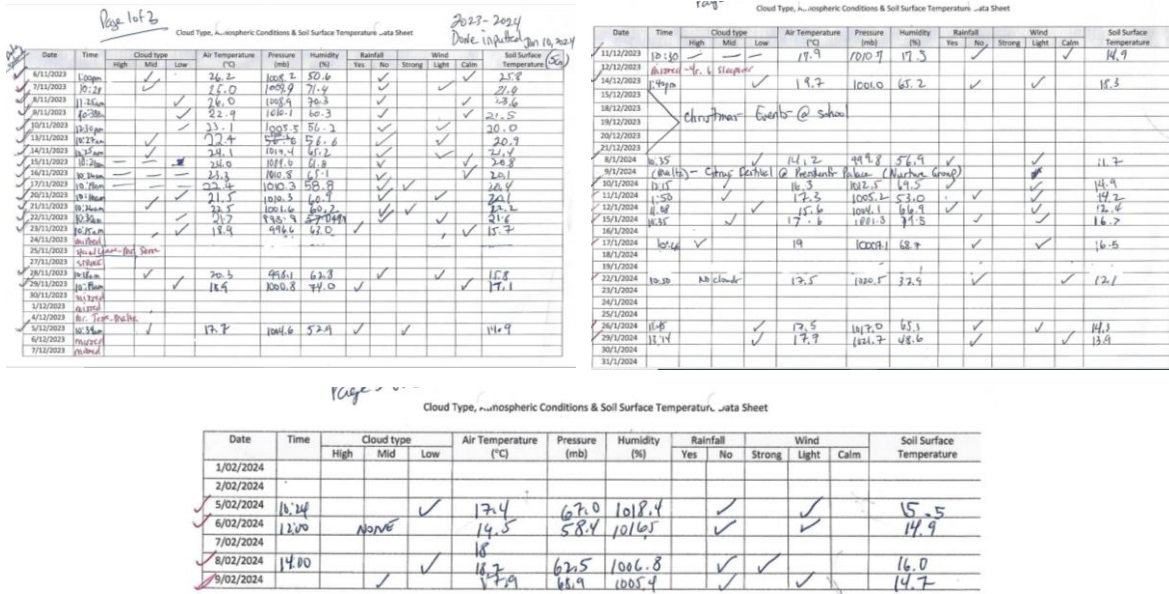 Page 1 of 3
2023-2024
Cloud Type, Atmospheric Conditions & Soil Surface Temperature Data Sheet
Done inputted Jan 10, 2024
Date Time Cloud type Air Temperature Pressure Humidity Rainfall Wind Soil Surface
High Mid Low (°C) (mb) (%) Yes No Strong Light Calm Temperature
6/11/2023 1:00pm 26.2 1008.2 50.6 25.8
7/11/2023 10:28 25.0 1009.9 71.4 21.9
8/11/2023 11:25am 26.0 1008.9 70.3 23.6
9/11/2023 10:38am 22.9 1010.1 60.3 21.5
10/11/2023 12:30pm 23.1 1005.5 56.2 20.0
13/11/2023 10:27am 22.4 56.6 20.9
14/11/2023 24.1 1010.4 65.2 21.4
15/11/2023 24.0 61.8 20.8
16/11/2023 23.3 1010.8 65.1 20.1
17/11/2023 22.4 1010.3 58.8 20.4
20/11/2023 21.5 1010.3 60.9 20.1
21/11/2023 22.5 1001.6 60.2
22/11/2023 21.7 21.6
23/11/2023 10:15am 18.9 996.6 63.0 15.7
24/11/2023 missed
25/11/2023
27/11/2023
28/11/2023 10:18am 20.3 998.1 62.8 15.8
29/11/2023 18.9 1000.8 74.0 17.1
30/11/2023 missed
1/12/2023 missed
4/12/2023
5/12/2023 10:39am 17.7 1004.6 52.9 14.9
6/12/2023 missed
7/12/2023 missed
Cloud Type, Atmospheric Conditions & Soil Surface Temperature Data Sheet
Date Time Cloud type Air Temperature Pressure Humidity Rainfall Wind Soil Surface
High Mid Low (°C) (mb) (%) Yes No Strong Light Calm Temperature
11/12/2023 10:30 17.9 1010.7 17.3 14.9
12/12/2023 missed - Yr. 6 sleepover
14/12/2023 1:40pm 19.7 1001.0 65.2 15.3
15/12/2023
18/12/2023 Christmas Events @ school
19/12/2023
20/12/2023
21/12/2023
8/1/2024 10:35 14.2 999.8 56.9 11.7
9/1/2024 (Malta) - Citrus Festival @ Presidents Palace (Nurture Group)
10/1/2024 12:15 16.3 1012.5 69.5 14.9
11/1/2024 1:50 17.3 1005.2 53.0 14.2
12/1/2024 11.08 15.6 1004.1 66.9 12.4
15/1/2024 10:35 17.6 1001.3 16.2
16/1/2024
17/1/2024 19 10007.1 68.7 16.5
18/1/2024
19/1/2024
22/1/2024 10:50 No clouds 17.5 1020.5 37.9 12.1
23/1/2024
24/1/2024
25/1/2024
26/1/2024 11:45 17.5 1017.0 65.1 14.3
29/1/2024 13.14 17.9 1021.7 48.6 13.9
30/1/2024
31/1/2024
Page
Cloud Type, Atmospheric Conditions & Soil Surface Temperature Data Sheet
Date Time Cloud type Air Temperature Pressure Humidity Rainfall Wind Soil Surface
High Mid Low (°C) (mb) (%) Yes No Strong Light Calm Temperature
1/02/2024
2/02/2024
5/02/2024 10:24 17.4 67.0 1018.4 15.5
6/02/2024 12:00 NONE 14.5 58.4 1016.5 14.9
7/02/2024 18
8/02/2024 14.00 18.7 62.5 1006.8 16.0
9/02/2024 17.9 68.9 1005.4 14.7